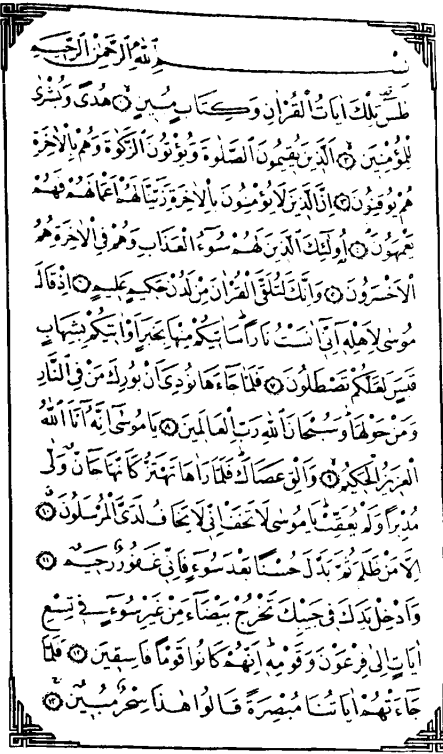 بِسْمِ اللّٰهِ الرَّحْمٰنِ الرَّحِيمِ
طٰسٓ تِلْكَ اٰيَاتُ الْقُرْاٰنِ وَكِتَابٍ مُبِينٍۙ ﴿١﴾ هُدًى وَبُشْرٰى
لِلْمُؤْمِنِينَۙ ﴿٢﴾ اَلَّذِينَ يُقِيمُونَ الصَّلٰوةَ وَيُؤْتُونَ الزَّكٰوةَ وَهُمْ بِالْاٰخِرَةِ
هُمْ يُوقِنُونَ ﴿٣﴾ اِنَّ الَّذِينَ لَا يُؤْمِنُونَ بِالْاٰخِرَةِ زَيَّنَّا لَهُمْ اَعْمَالَهُمْ فَهُمْ
يَعْمَهُونَۜ ﴿٤﴾ اُو۬لٰٓئِكَ الَّذِينَ لَهُمْ سُٓوءُ الْعَذَابِ وَهُمْ فِي الْاٰخِرَةِ هُمُ
الْاَخْسَرُونَ ﴿٥﴾ وَاِنَّكَ لَتُلَقَّى الْقُرْاٰنَ مِنْ لَدُنْ حَكِيمٍ عَلِيمٍ ﴿٦﴾ اِذْ قَالَ
مُوسٰى لِاَهْلِهٓ اِنّٓي اٰنَسْتُ نَارًاۜ سَاٰتِيكُمْ مِنْهَا بِخَبَرٍ اَوْ اٰتِيكُمْ بِشِهَابٍ
قَبَسٍ لَعَلَّكُمْ تَصْطَلُونَ ﴿٧﴾ فَلَمَّا جَٓاءَهَا نُودِيَ اَنْ بُورِكَ مَنْ فِي النَّارِ
وَمَنْ حَوْلَهَاۜ وَسُبْحَانَ اللّٰهِ رَبِّ الْعَالَمِينَ ﴿٨﴾ يَا مُوسٰٓى اِنَّهُٓ اَنَا اللّٰهُ
الْعَزِيزُ الْحَكِيمُۙ ﴿٩﴾ وَاَلْقِ عَصَاكَۜ فَلَمَّا رَاٰهَا تَهْتَزُّ كَاَنَّهَا جَٓانٌّ وَلّٰى
مُدْبِرًا وَلَمْ يُعَقِّبْۜ يَا مُوسٰى لَا تَخَفْ اِنّٓي لَا يَخَافُ لَدَيَّ الْمُرْسَلُونَۗ ﴿١٠﴾
اِلَّا مَنْ ظَلَمَ ثُمَّ بَدَّلَ حُسْنًا بَعْدَ سُٓوءٍ فَاِنّٓي غَفُورٌ رَحِيمٌ ﴿١١﴾
وَاَدْخِلْ يَدَكَ فِي جَيْبِكَ تَخْرُجْ بَيْضَٓاءَ مِنْ غَيْرِ سُٓوءٍ فِي تِسْعِ
اٰيَاتٍ اِلٰى فِرْعَوْنَ وَقَوْمِهۜ اِنَّهُمْ كَانُوا قَوْمًا فَاسِقِينَ ﴿١٢﴾ فَلَمَّا
جَٓاءَتْهُمْ اٰيَاتُنَا مُبْصِرَةً قَالُوا هٰذَا سِحْرٌ مُبِينٌۚ ﴿١٣﴾